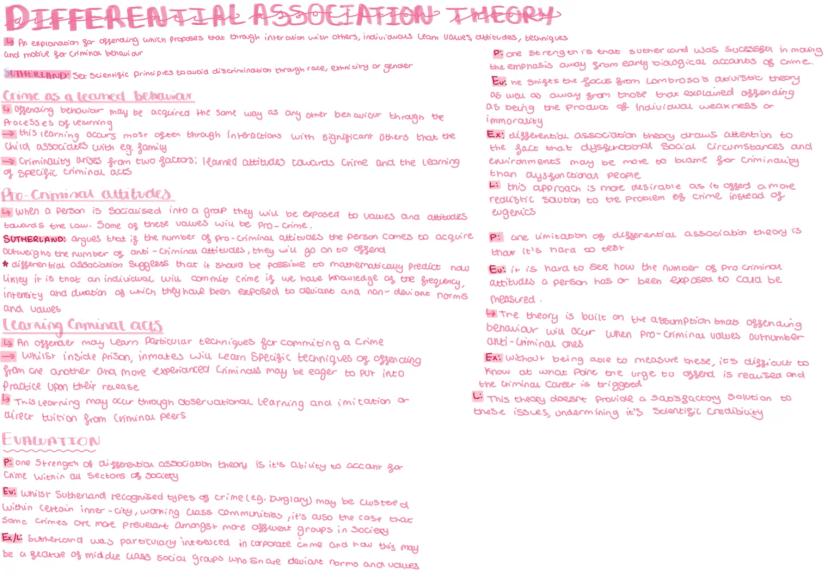 DIFFERENTIAL ASSOCIATION THEORY
↳ An explanation for offending which proposes that through interaction with others, individuals learn values, attitudes, techniques
and motive for criminal behaviour
SUTHERLAND: Set scientific principles to avoid discrimination through race, ethnicity or gender
Crime as a learned behaviour
↳ Offending behaviour may be acquired the same way as any other behaviour through the
Processes of learning
→ this learning occurs most often through interactions with significant others that the
child associates with eg. family
→ Criminality arises from two factors; learned attitudes towards crime and the learning
of specific criminal acts
Pro-Criminal attitudes
↳ When a person is socialised into a group they will be exposed to values and attitudes
towards the law. Some of these values will be pro-crime.
SUTHERLAND: argues that if the number of pro-criminal attitudes the person comes to acquire
outweighs the number of anti-criminal attitudes, they will go on to offend
★ differential association suggests that it should be possible to mathematically predict how
likely it is that an individual will commit crime if we have knowledge of the frequency,
intensity and duration of which they have been exposed to deviant and non-deviant norms
and values
Learning Criminal acts
↳ An offender may learn particular techniques for commiting a crime
→ Whilst inside prison, inmates will learn specific techniques of offending
from one another and more experienced criminals may be eager to put into
practice upon their release
↳ This learning may occur through observational learning and imitation or
direct tuition from criminal peers
EVALUATION
P: one strength of differential association theory is it's ability to account for
crime within all sectors of society
Ev: whilst Sutherland recognised types of crime (eg. burglary) may be clustered
within certain inner-city, working class communities, it's also the case that
some crimes are more prevelant amongst more affluent groups in society
Ex/L: Sutherland was particulary interested in corporate crime and how this may
be a feature of middle class social groups who share deviant norms and values
P: one strength is that sutherland was sucessful in moving
the emphasis away from early biological accounts of crime.
Ev: he shifted the focus from Lombroso's atavistic theory
as well as away from those that explained offending
as being the product of individual weakness or
immorality
Ex: differential association theory draws attention to
the fact that dysfunctional social circumstances and
environments may be more to blame for criminality
than dysfunctional people
L: this approach is more desirable as it offers a more
realistic solution to the problem of crime instead of
eugenics
P: one limitation of differential association theory is
that it's hard to test
Ev: it is hard to see how the number of pro criminal
attitudes a person has or been exposed to could be
measured.
↳ The theory is built on the assumption that offending
behaviour will occur when pro-criminal values outnumber
anti-criminal ones
Ex: without being able to measure these, it's difficult to
know at what point the urge to offend is realised and
the criminal career is triggered
L: This theory doesnt provide a satisfactory solution to
these issues, undermining it's scientific credibility